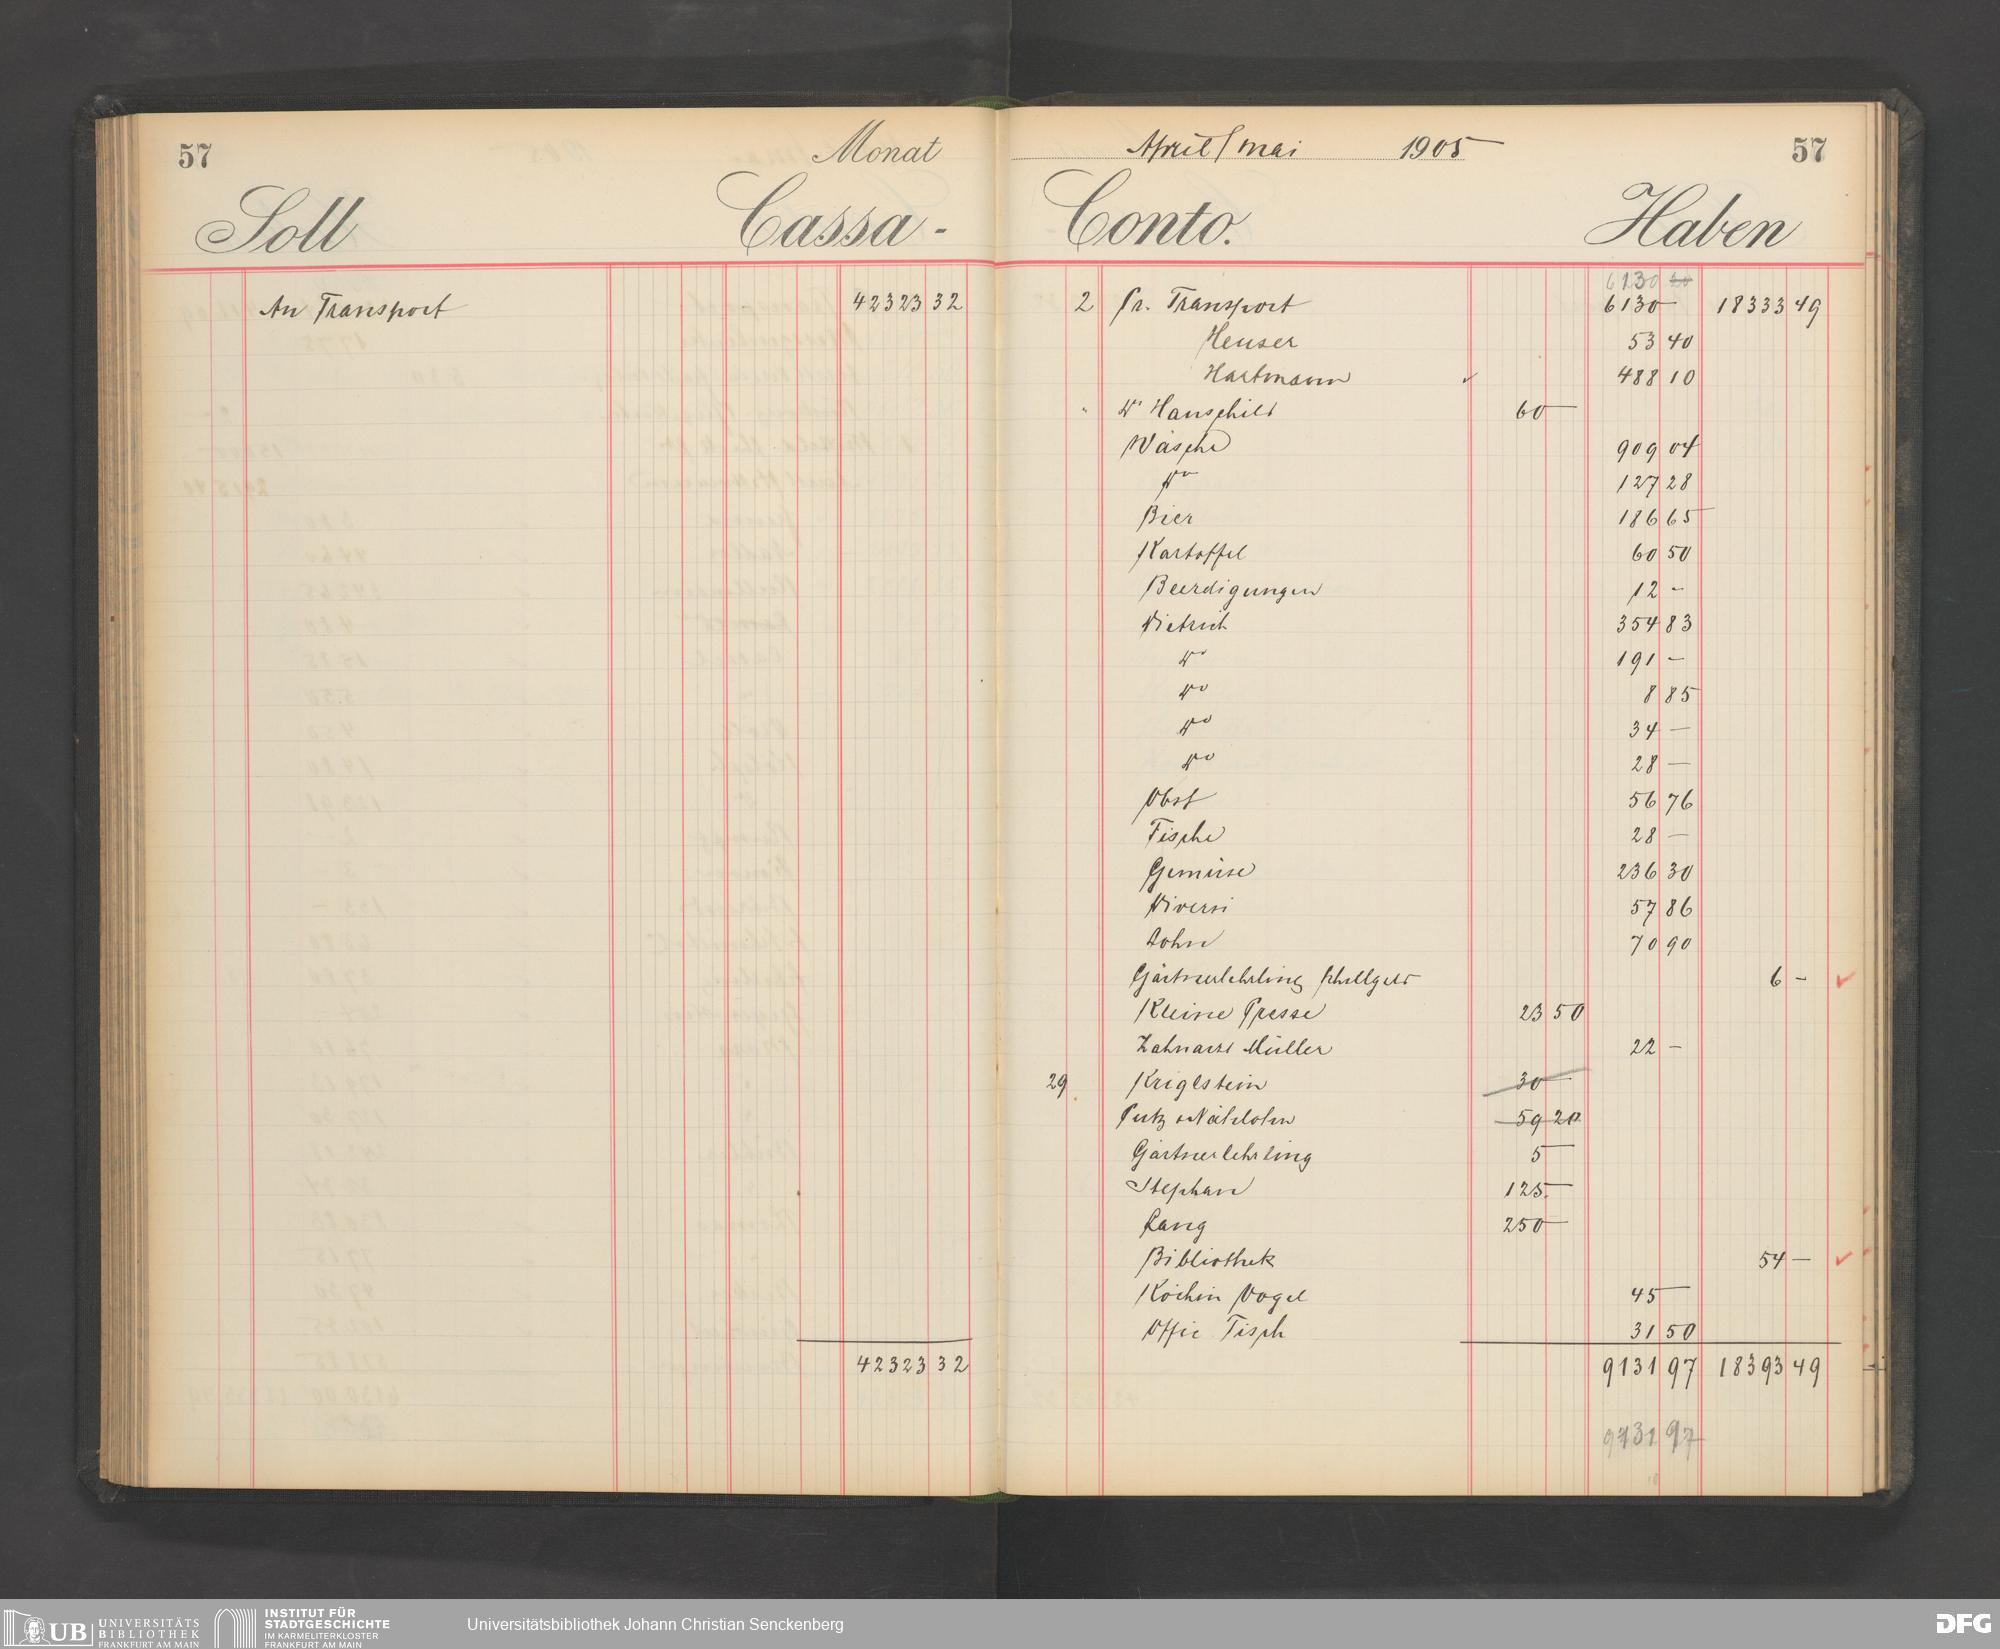 57 Monat
Soll Cassa-
An Transport 42323 32
42323 32
April/Mai 1905 57
Conto. Haben
6130 20
2 Pr. Transport 6130 — 18333 49
Heuser 53 40
Hartmann ✓ 488 10
" Dr Hauschild 60 —
Wäsche 909 04
do 127 28
Bier 186 65
Kartoffel 60 50
Beerdigungen 12 -
Dietrich 354 83
do 191 —
do 8 85
do 34 —
do 28 —
Obst 56 76
Fische 28 —
Gemüse 236 30
Diversi 57 86
Lohn 70 90
Gärtnerlehrling Schulgeld 6 - ✓
Kleine Presse 23 50
Zahnarzt Müller 22 -
29 Kriglstein 30 —
Putz & Nählohn 59 20
Gärtnerlehrling 5 —
Stephan 125 —
Lang 250 —
Bibliothek 54 — ✓
Köchin Vogel 45 —
Offic Tisch 31 50
9131 97 18393 49
9131 97
UB UNIVERSITÄTS
BIBLIOTHEK
FRANKFURT AM MAIN
INSTITUT FÜR
STADTGESCHICHTE
IM KARMELITERKLOSTER
FRANKFURT AM MAIN
Universitätsbibliothek Johann Christian Senckenberg
DFG